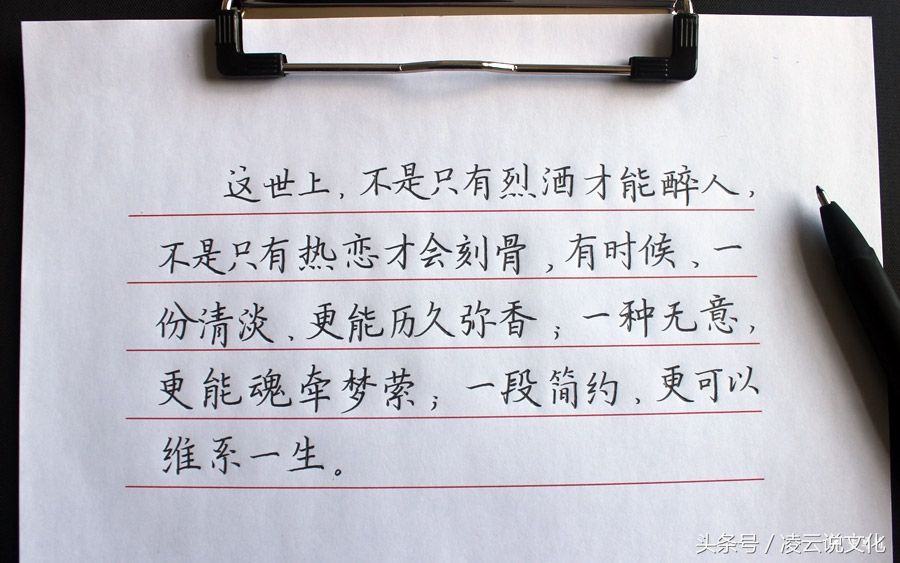 这世上,不是只有烈酒才能醉人,
不是只有热恋才会刻骨,有时候、一
份清淡、更能历久弥香;一种无意,
更能魂牵梦萦;一段简约、更可以
维系一生。
头条号/凌云说文化